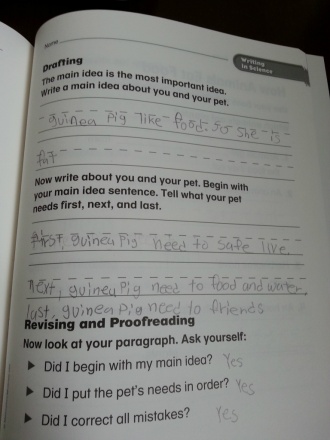 Name
Writing
in Science
Drafting
The main idea is the most important idea.
Write a main idea about you and your pet.
guinea pig like food. so she is
fat
Now write about you and your pet. Begin with
your main idea sentence. Tell what your pet
needs first, next, and last.
first, guinea pig need to safe live.
next, guinea pig need to food and water
last, guinea pig need to friends
Revising and Proofreading
Now look at your paragraph. Ask yourself:
▶ Did I begin with my main idea? Yes
▶ Did I put the pet's needs in order? Yes
▶ Did I correct all mistakes? Yes